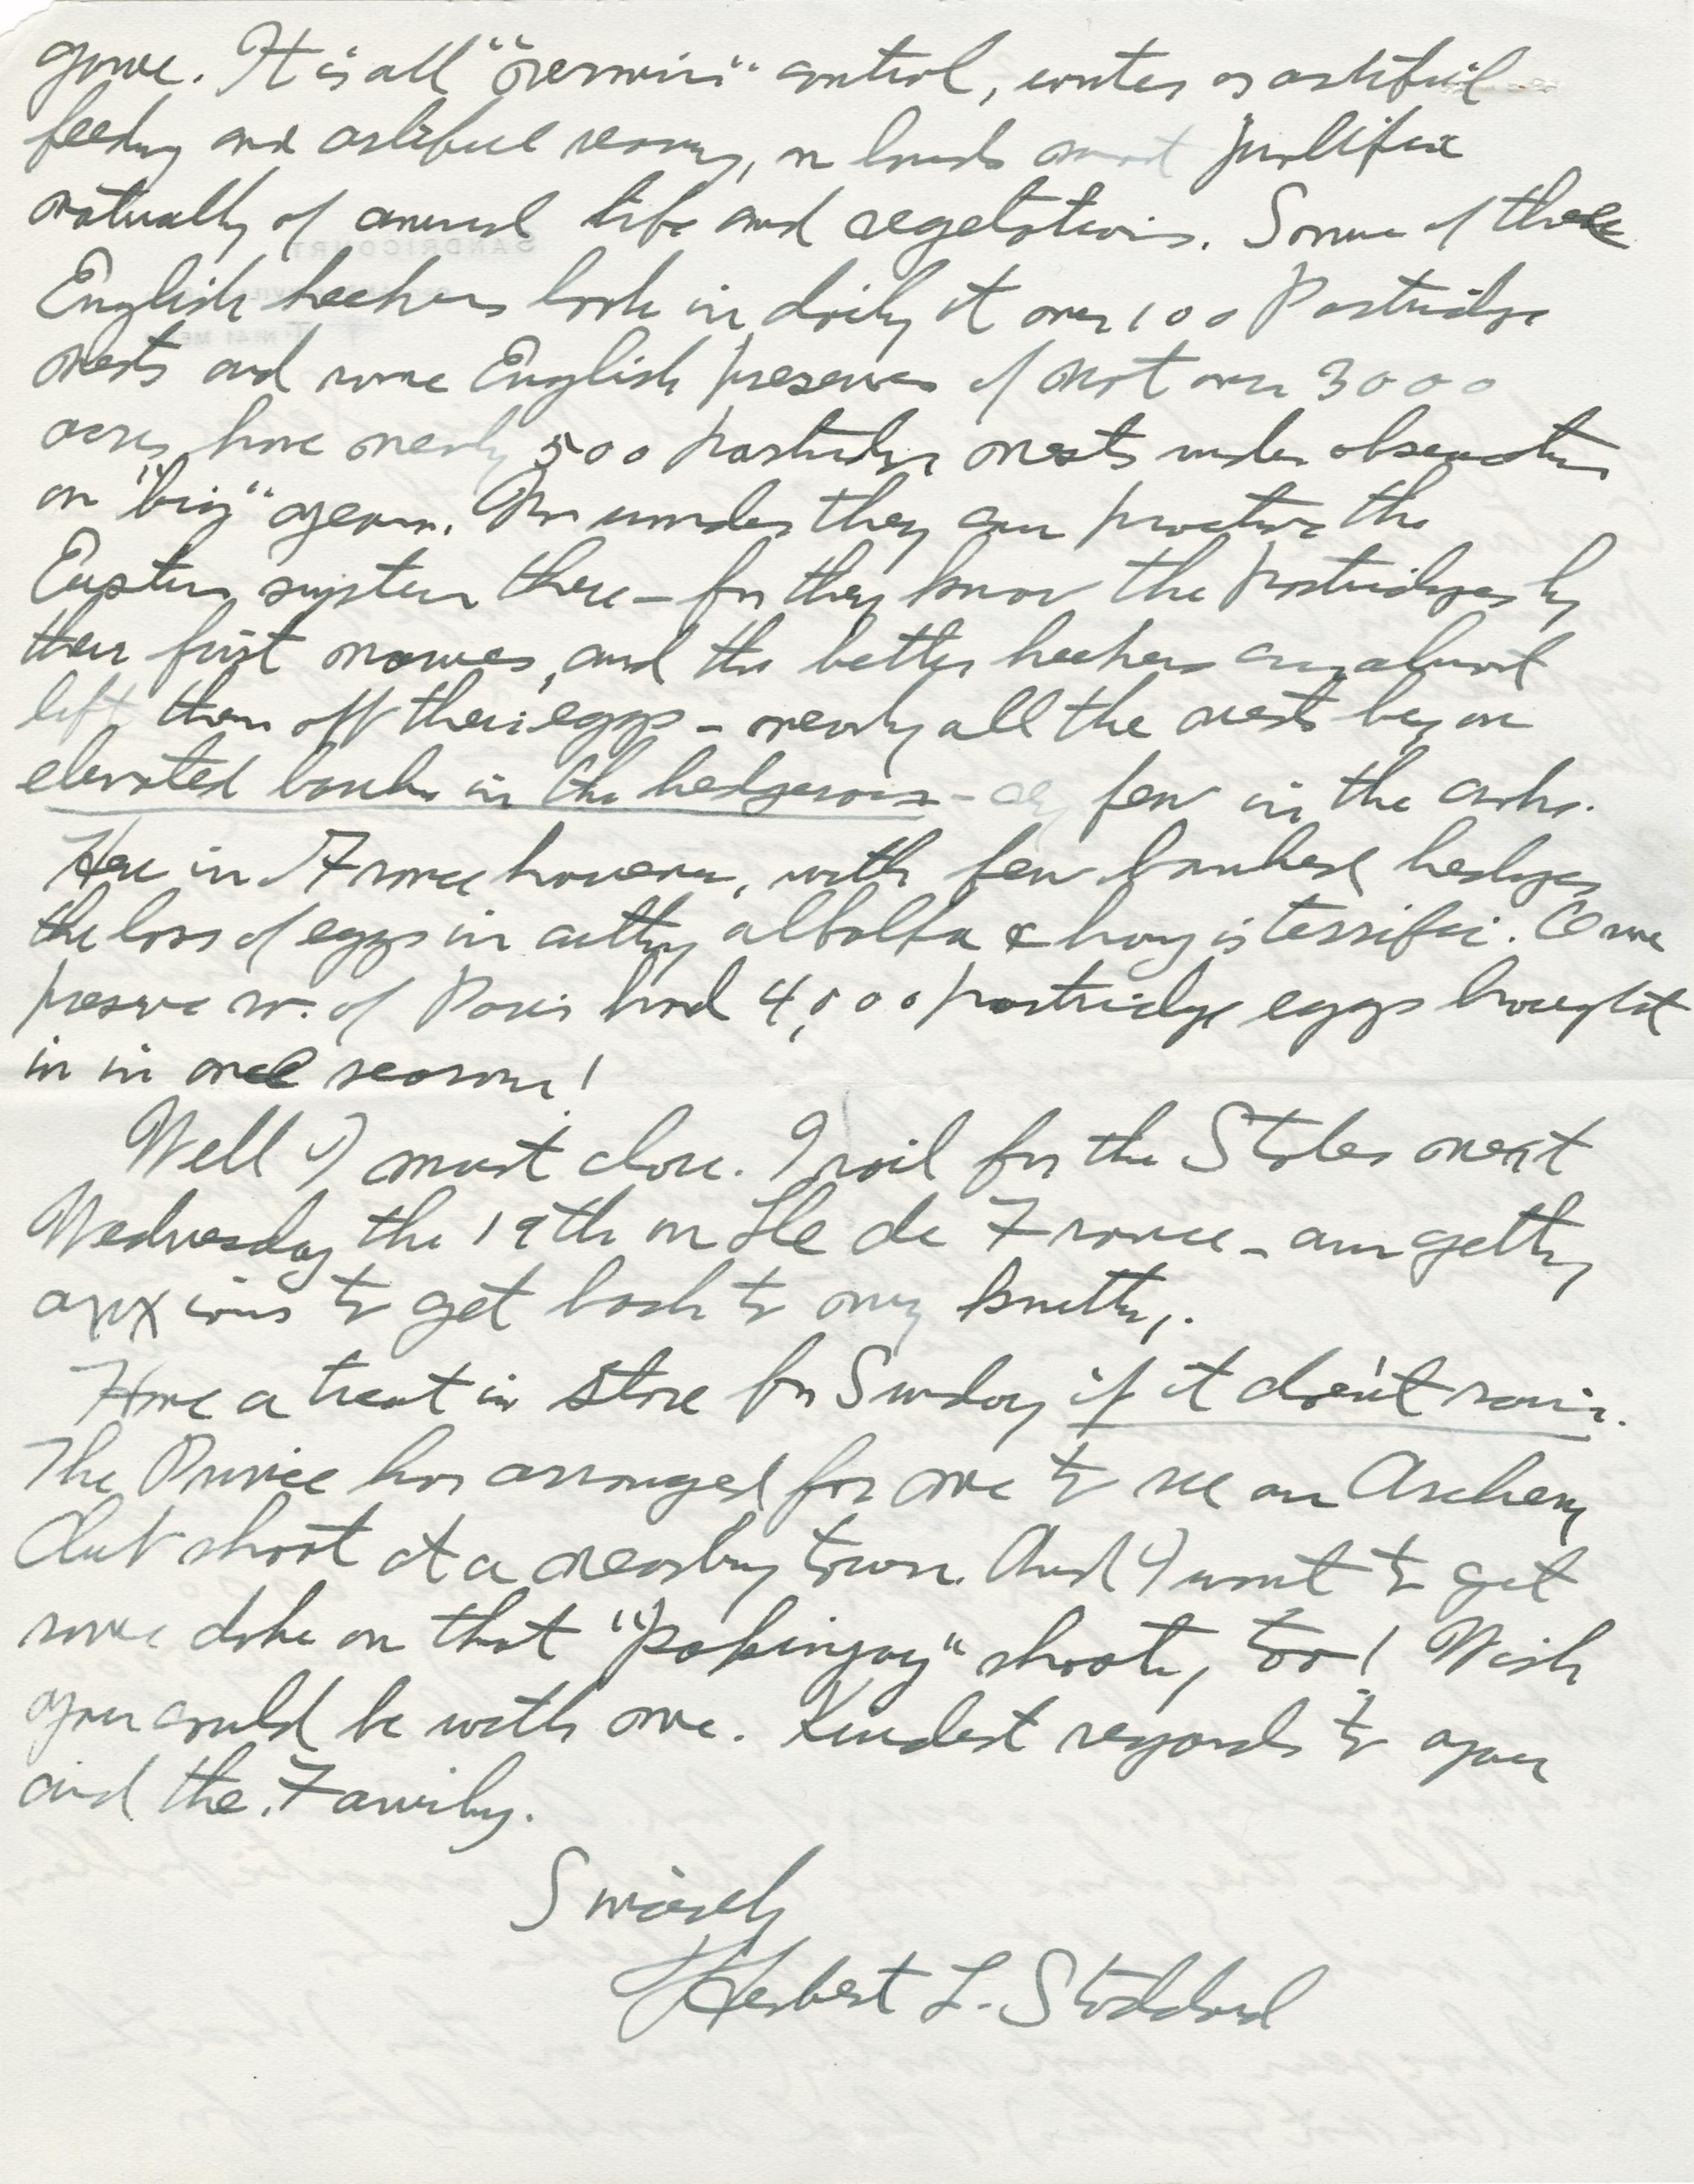 game. It is all "vermin" control, winter artificial
feeding and artificial rearing, on lands most prolific
naturally of animal life and vegetation. Some of these
English keekers look in daily at over 100 Partridge
nests and some English preserves of not over 3000
acres have nearly 500 partridge nests under observation
on "big" years. No wonder they can practice the
Euston system there – for they know the partridges by
their first names, and the better keekers can almost
lift them off their eggs – nearly all the nests being on
elevated banks in the hedgerows – few in the
Here in France however, with few banked hedges
the loss of eggs in cutting alfalfa & hay is terrific. One
preserve w. of Paris had 4,000 partridge eggs brought
in in one season!
Well I must close. I sail for the States next
Wednesday the 19th on Ile de France – am getting
anxious to get back to my knitting.
Have a treat in store for Sunday if it don't rain.
The Prince has arranged for me to see an Archery
Club shoot at a nearby town. And I want to get
some doke on that "popinjay" shooting, too! Wish
you could be with me. Kindest regards to you
and the Family.
Sincerely
Herbert L. Stoddard
SANDRICOURT